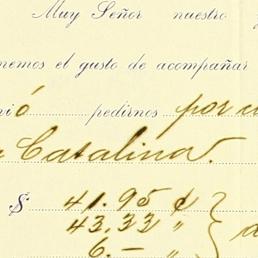 Muy Señor nuestro
nemos el gusto de acompañar
nió pedirnos por
Catalina.
$ 41.95 ¢
43.33 "
6.— "